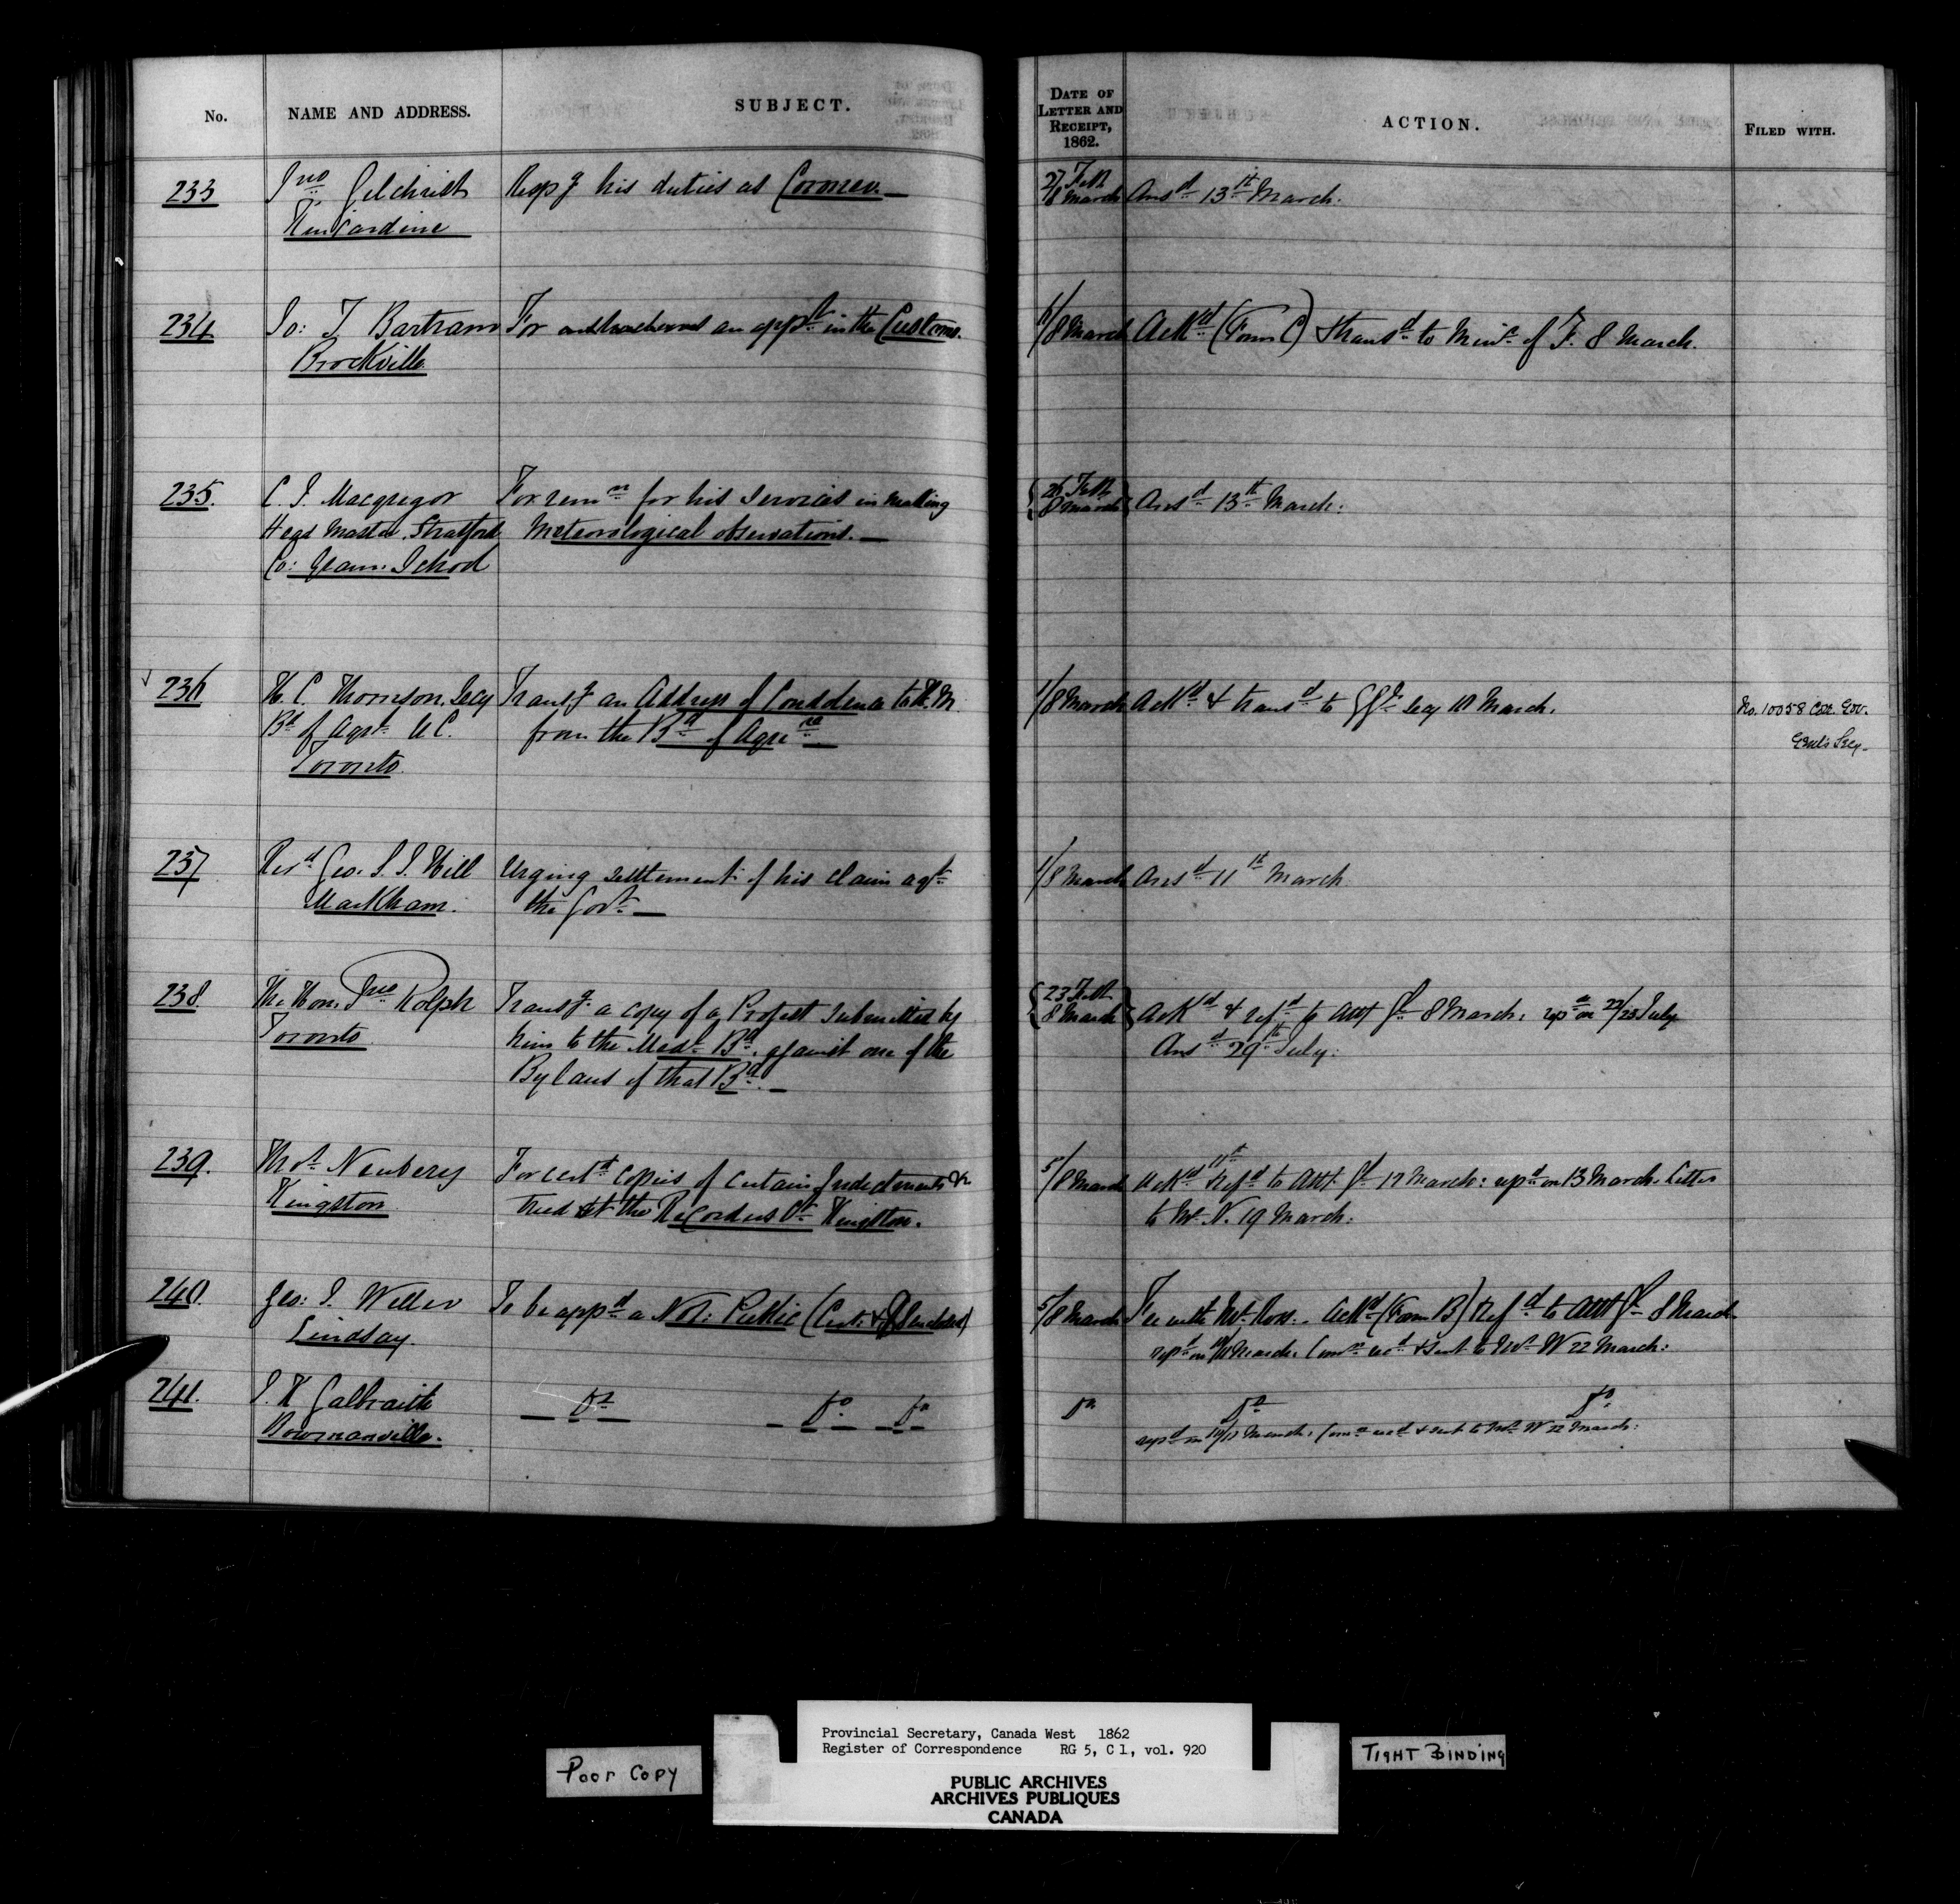 No.
NAME AND ADDRESS.
SUBJECT.
DATE OF
LETTER AND
RECEIPT,
1862.
ACTION.
FILED WITH.
233
Jno Gilchrist
Kincardine
Resp.g his duties as Coroner.
27 Feb
8 March
Ansd 13th March.
234
Jo: T Bartram
Brockville
For an appt in the Customs.
6/8 March
Ackd (Form C) & transd to Minr of F. 8 March.
235.
C. J. Macgregor
Head Master Stratford
Co: Gram. School
For remn for his services in making
Meteorological observations.
26 Feb
8 March
Ansd 13th March:
236
H. C. Thomson, Secy
Bd of Agrt U.C.
Toronto
Transg an Address of Condolence to H.M.
from the Bd of Agre
1/8 March
Ackd & transd to Secy 10 March.
No. 10058 Gov.
Genl's Secy.
237
Revd Geo. S. J. Hill
Markham.
Urging settlement of his claim agt
the Govt
1/8 March
Ansd 11th March
238
The Hon. Jno Rolph
Toronto
Transg a copy of a Protest submitted by
him to the Medl Bd. against one of the
Bylaws of that Bd.
23 Feb
8 March
Ackd & refd to Atty Gl 8 March: repd on 22/23 July
Ansd 29th July:
239.
Thos Newbery
Kingston
For certd copies of certain Indictments &c
tried at the Recorders Ct Kingston.
5/8 March
Ackd & Refd to Atty Gl 11th March: repd on 13 March. Letter
to Mr N. 19 March:
240.
Geo: J. Weller
Lindsay.
To be appd a Not: Public (Cert. & $ enclosed)
5/8 March
Fee with Mr Ross. Ackd (Form B) & Refd to Atty Gl 8 March
repd on March. Comn & sent to Mr W 22 March:
241.
J. K Galbraith
Bowmanville.
Do Do Do
Do Do Do
repd on March. Comn & sent to Mr W 22 March:
Poor Copy
Provincial Secretary, Canada West 1862
Register of Correspondence RG 5, C 1, vol. 920
PUBLIC ARCHIVES
ARCHIVES PUBLIQUES
CANADA
TIGHT BINDING